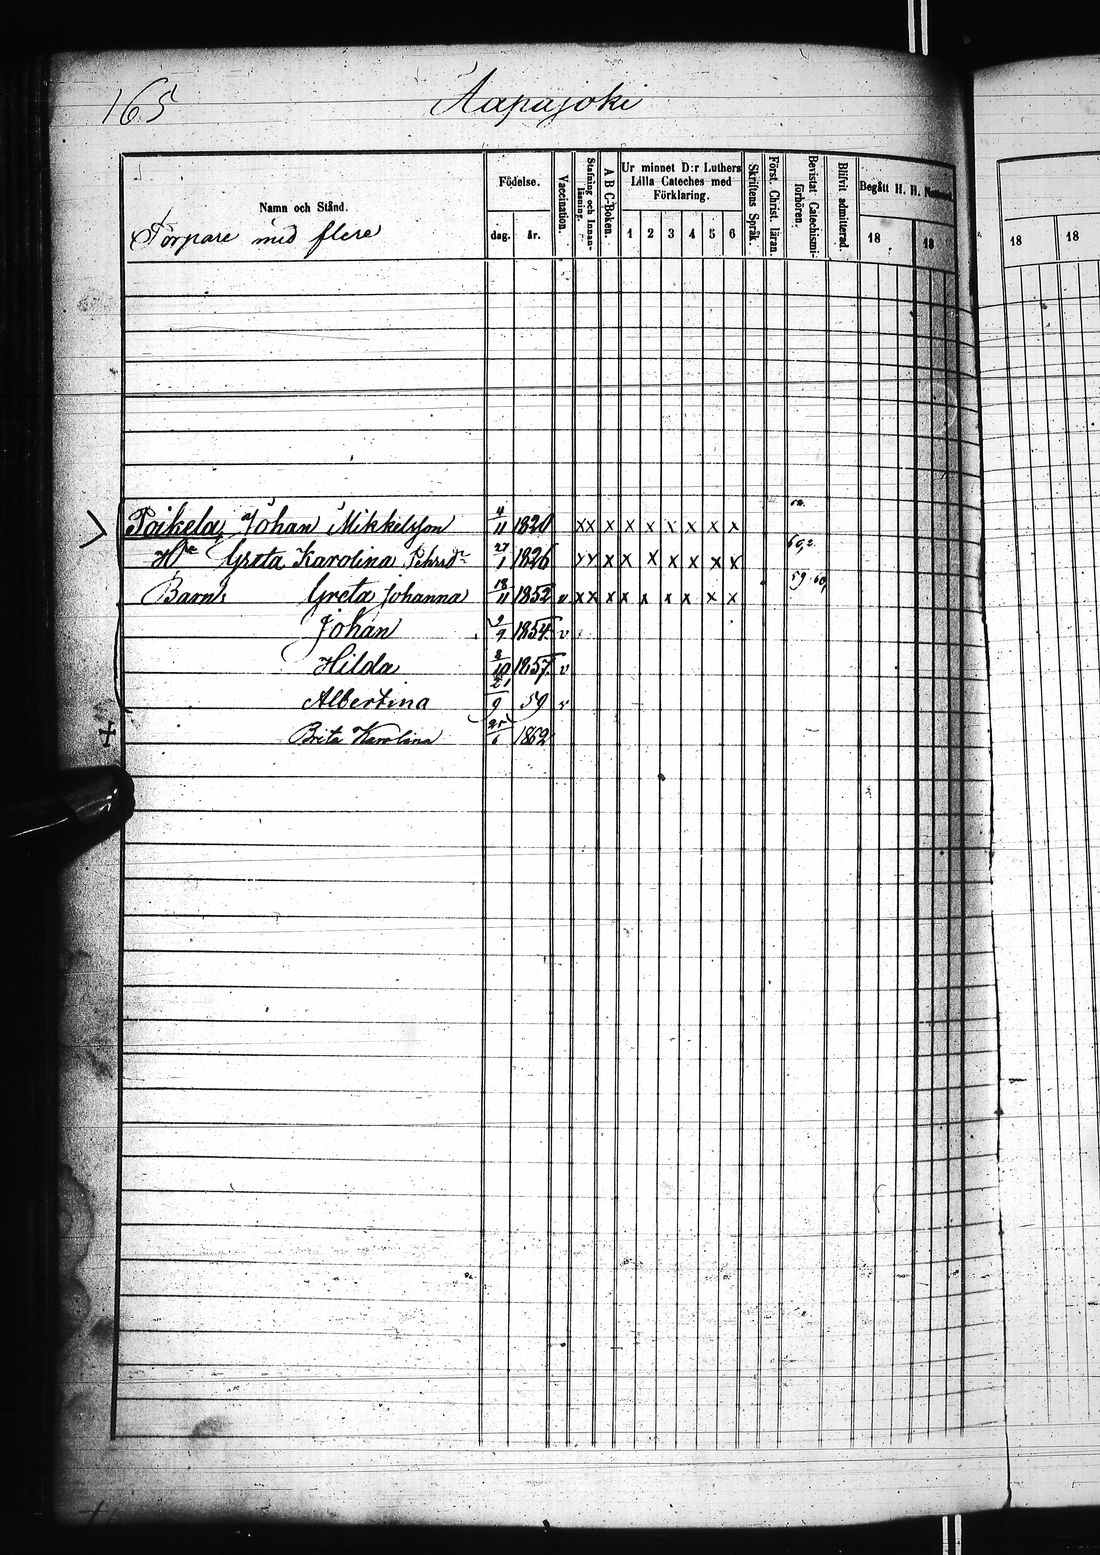 165
Aapajoki
Namn och Stånd.
Torpare med flere
Födelse.
dag. år.
Vaccination.
Stafning och Innan-läsning.
A B C-Boken.
Ur minnet D:r Luthers
Lilla Cateches med
Förklaring.
1 2 3 4 5 6
Skriftens Språk.
Först. Christ. läran.
Bevistat Catechismi-förhören.
Blifvit admitterad.
Begått H. H.
18 18
18 18
Poikela, Johan Mikkelsson 4/11 1820 xx x x x x x x x
Greta Karolina 27/1 1826 xx x x x x x x x 60,2
Barn: Greta Johanna 18/11 1852 v xx x x x x x x x 59 60
Johan 1854 v
Hilda 8/10 1857 v
Albertina 21/9 59 v
Brita Karolina 25/6 1862